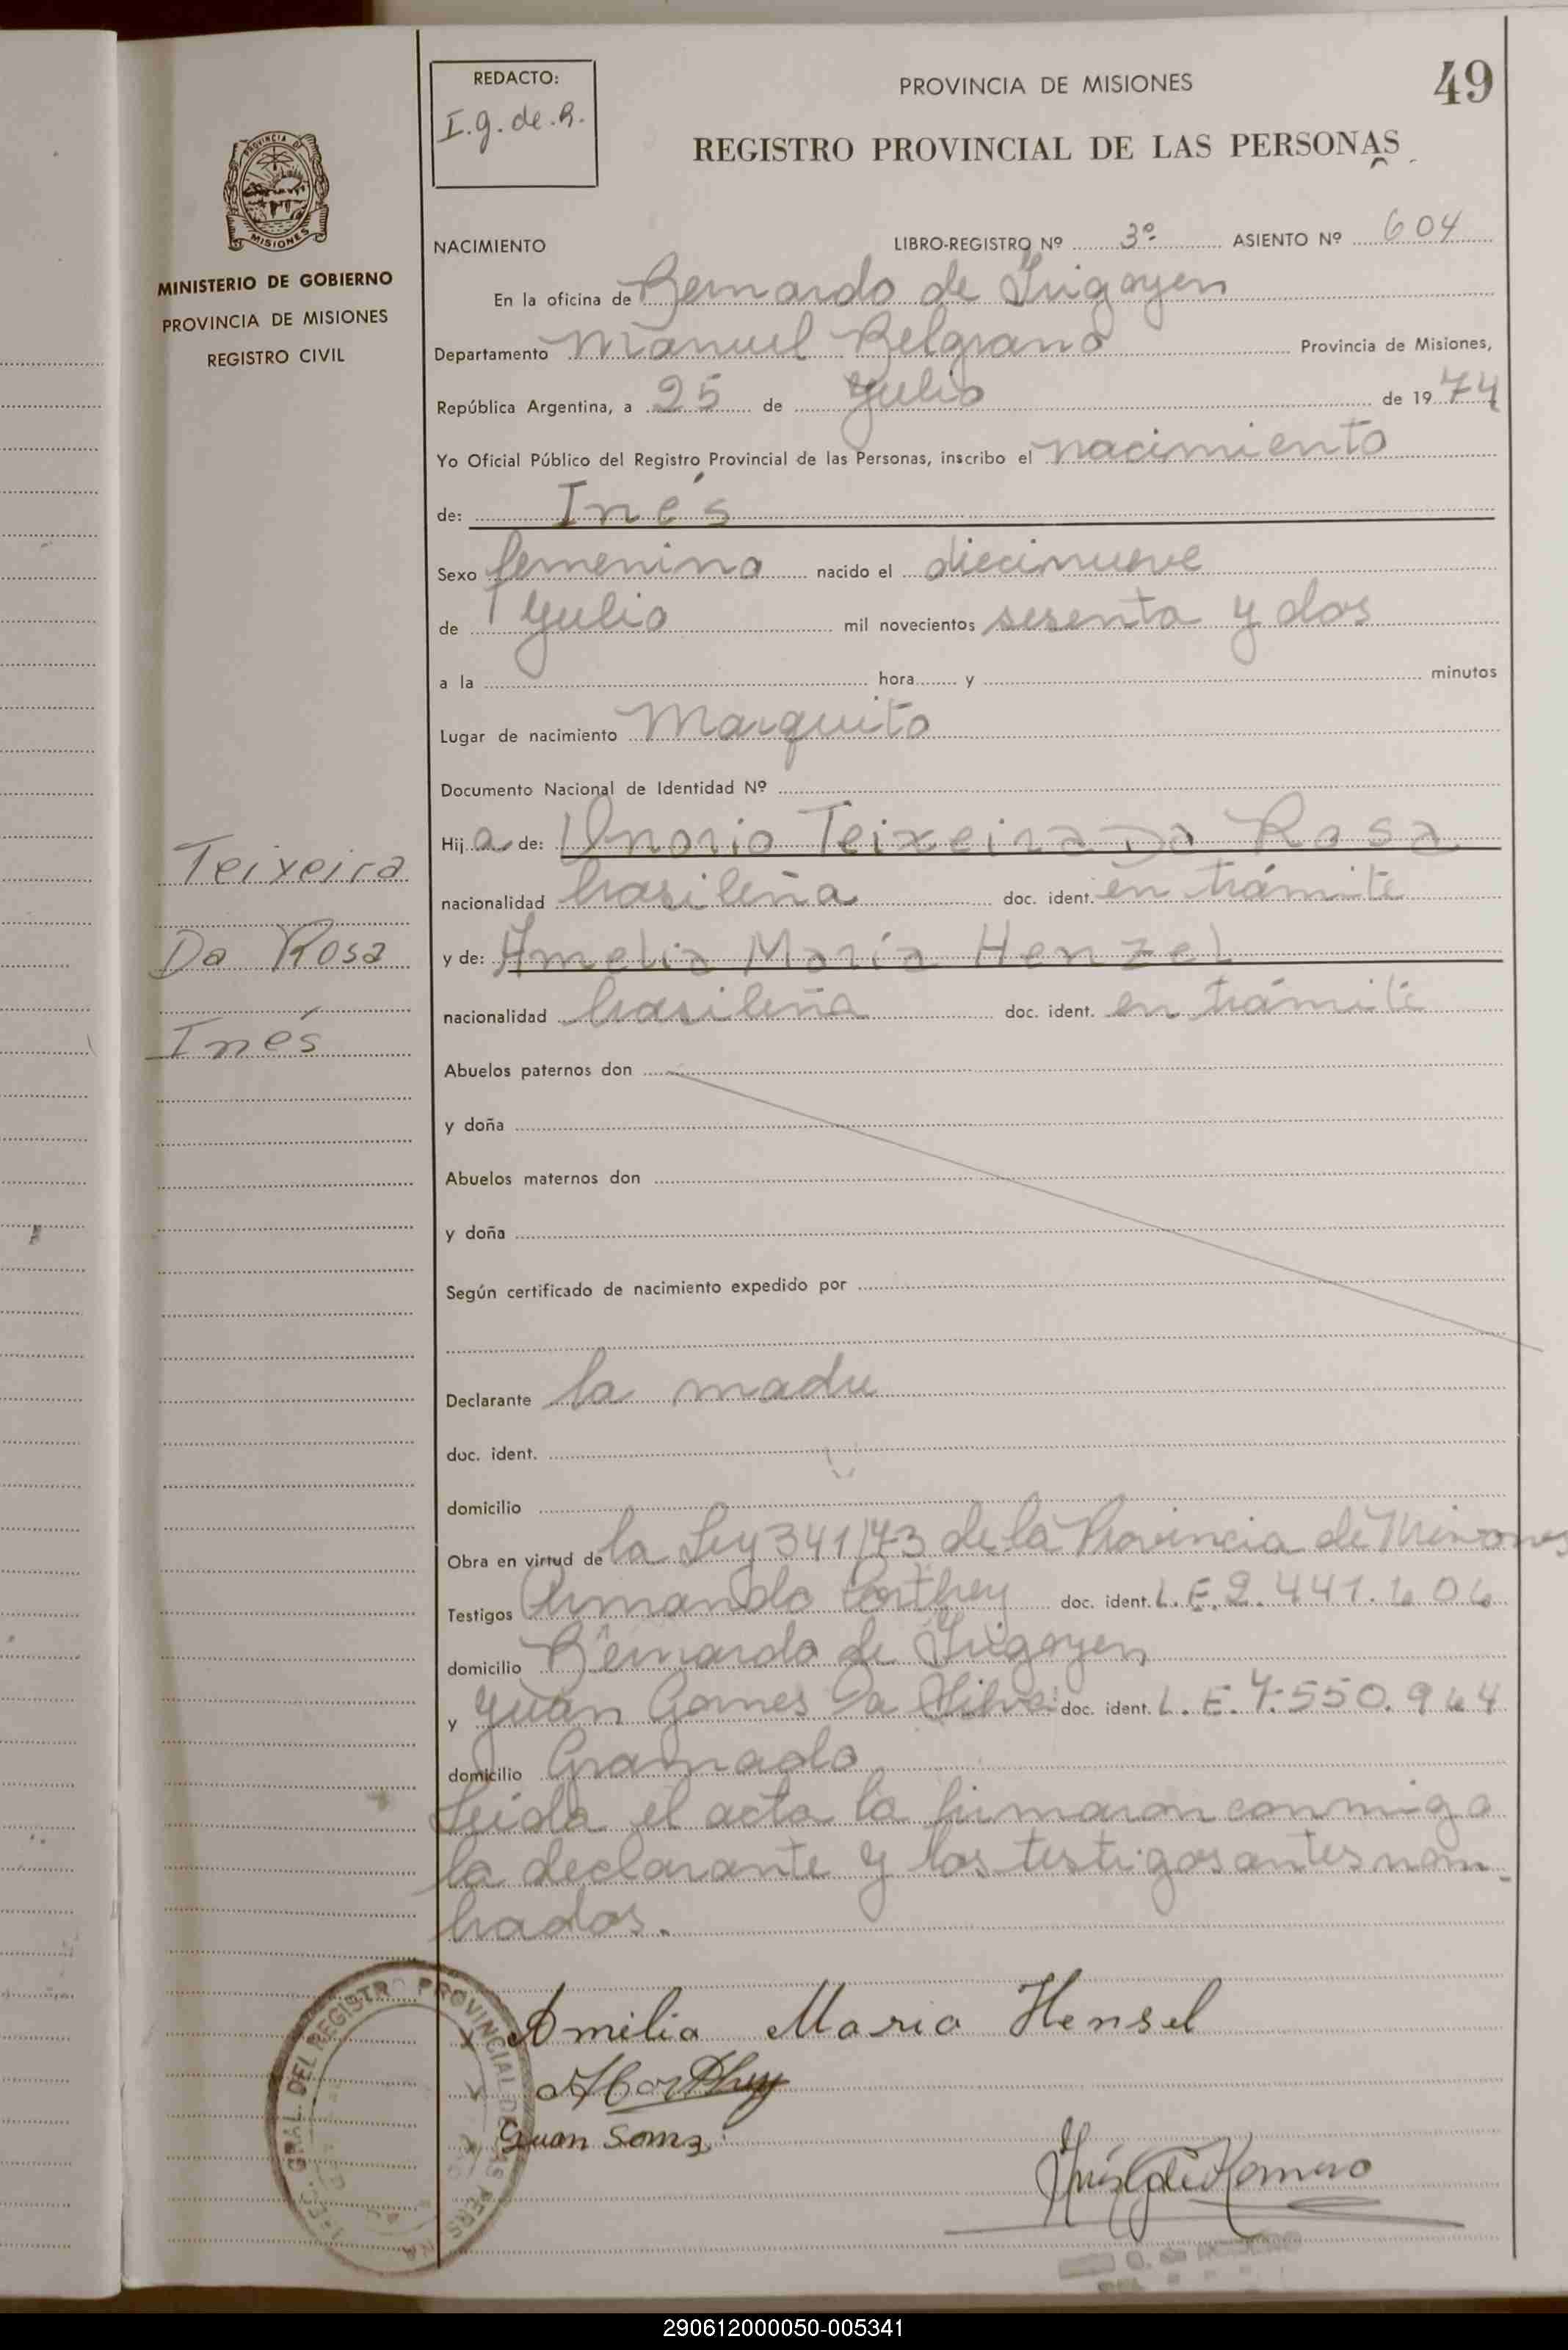 REDACTO:
I.g.de.R.
PROVINCIA DE MISIONES
49
REGISTRO PROVINCIAL DE LAS PERSONAS
MISIONES
MINISTERIO DE GOBIERNO
PROVINCIA DE MISIONES
REGISTRO CIVIL
NACIMIENTO LIBRO-REGISTRO Nº 3º ASIENTO Nº 604
En la oficina de Bernardo de Irigoyen
Departamento Manuel Belgrano Provincia de Misiones,
República Argentina, a 25 de Julio de 1974
Yo Oficial Público del Registro Provincial de las Personas, inscribo el nacimiento
de: Inés
Sexo femenino nacido el diecinueve
de Julio mil novecientos sesenta y dos
a la hora y minutos
Lugar de nacimiento Marquito
Documento Nacional de Identidad Nº
Hija de: Onorio Teixeira Da Rosa
nacionalidad brasileña doc. ident. en trámite
y de: Amelia María Henzel
nacionalidad brasileña doc. ident. en trámite
Teixeira
Da Rosa
Inés
Abuelos paternos don
y doña
Abuelos maternos don
y doña
Según certificado de nacimiento expedido por
Declarante la madre
doc. ident.
domicilio
Obra en virtud de la Ley 341/73 de la Provincia de Misiones
Testigos Armando doc. ident. L.E.
domicilio Bernardo de Irigoyen
y Juan Gomes Da Silva doc. ident. L.E. 7.550.964
domicilio Gramado
Leida el acta la firmaron conmigo
la declarante y los testigos antes nom-
brados.
Amilia Maria Hensel
Juan
GRAL. DEL REGISTRO PROVINCIAL DE LAS PERSONA
290612000050-005341